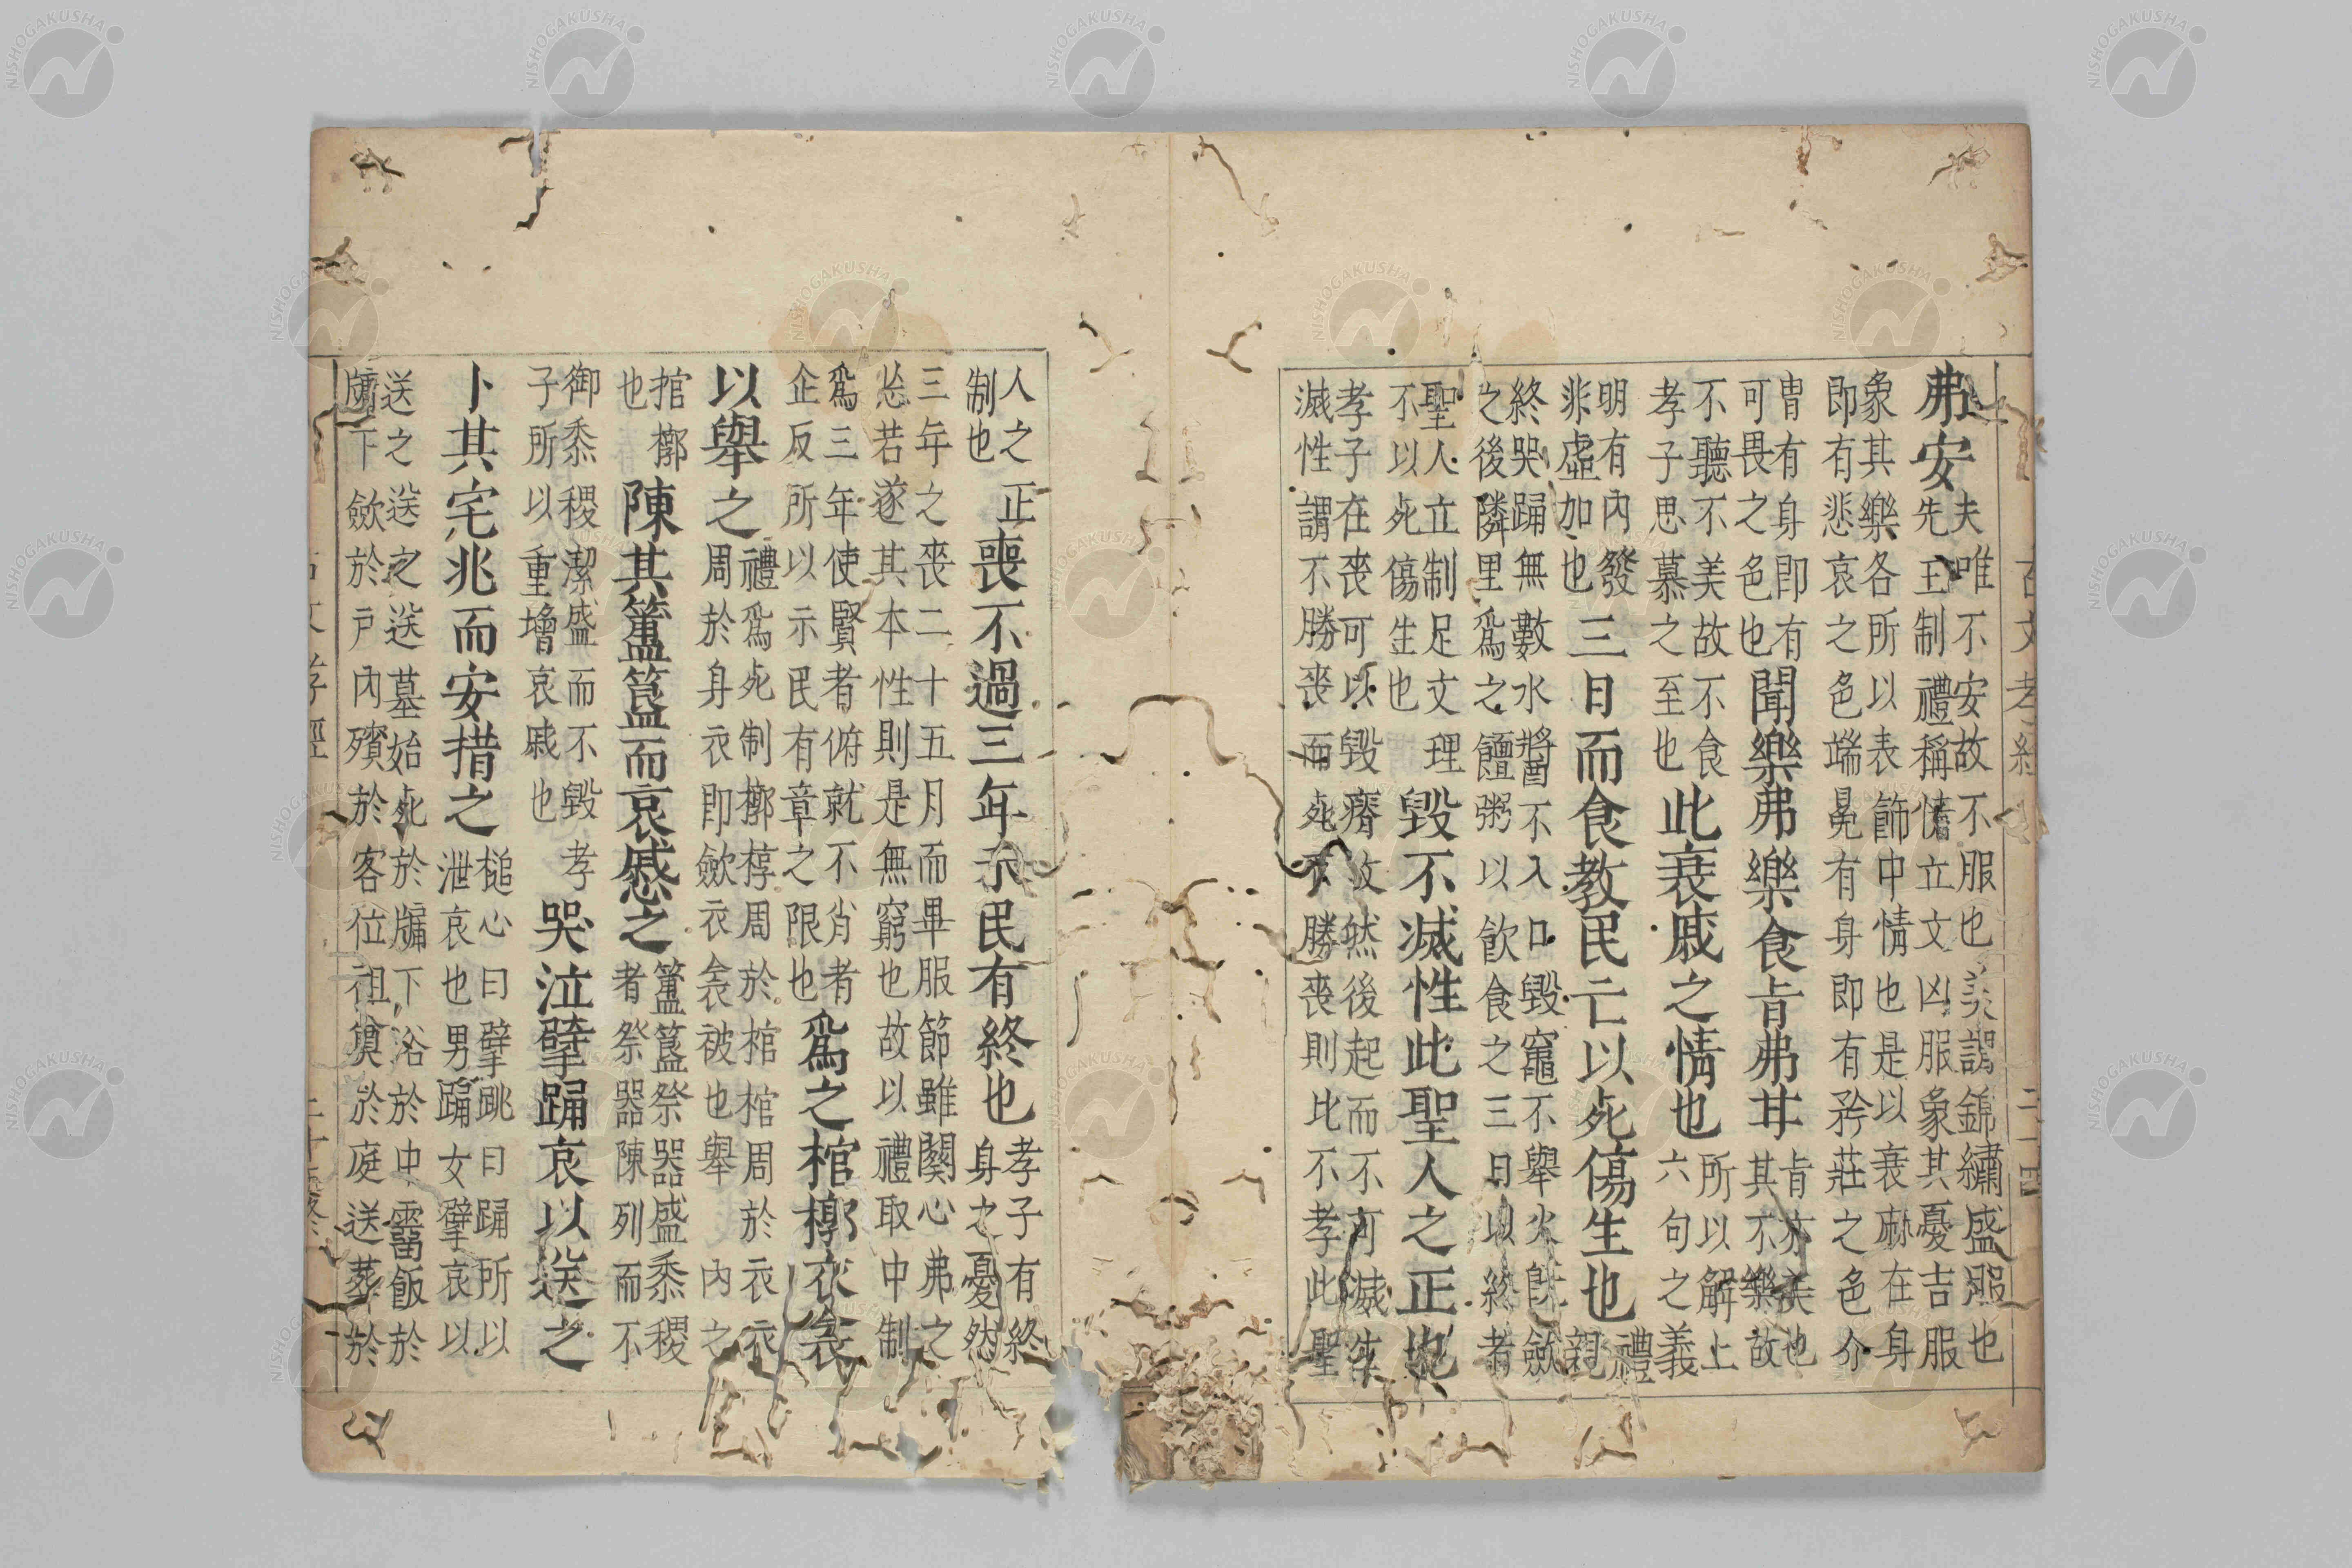 弗安夫唯不安故不服也美謂錦繡盛服也
先王制禮稱情立文凶服象其憂吉服
象其樂各所以表飾中情也是以衰麻在身
即有悲哀之色端冕有身即有矜莊之色介
冑有身即有
可畏之色也聞樂弗樂食旨弗甘旨亦美也
其不樂故
不聽不美故不食
孝子思慕之至也此哀戚之情也所以解上
六句之義
明有內發
非虛加也三日而食教民亡以死傷生也禮
親
終哭踊無數水漿不入口毀竈不舉火既斂
之後隣里爲之饘粥以飲食之三日以終者
聖人立制足文理
不以死傷生也毀不滅性此聖人之正也
孝子在喪可以毀瘠杖然後起而不可滅生
滅性謂不勝喪而死不勝喪則比不孝此聖
古文孝經 二十四
人之正
制也喪不過三年示民有終也孝子有終
身之憂然
三年之喪二十五月而畢服節雖闋心弗之
忘若遂其本性則是無窮也故以禮取中制
爲三年使賢者俯就不肖者
企反所以示民有章之限也爲之棺槨衣衾
以舉之禮爲死制槨椁周於棺棺周於衣衣
周於身衣即斂衣衾被也舉內之
棺槨
也陳其簠簋而哀慼之簠簋祭器盛黍稷
者祭器陳列而不
御黍稷潔盛而不毀孝
子所以重增哀戚也哭泣擗踊哀以送之
卜其宅兆而安措之槌心曰擗跳曰踊所以
泄哀也男踊女擗哀以
送之送之送墓始死於牖下浴於中霤飯於
牖下斂於戶內殯於客位祖奠於庭送葬於